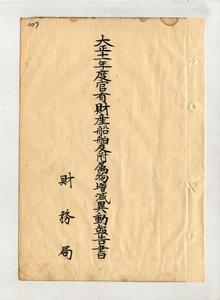 207
大正十一年度官有財産船舶及附属物増減異動報告書
財務局